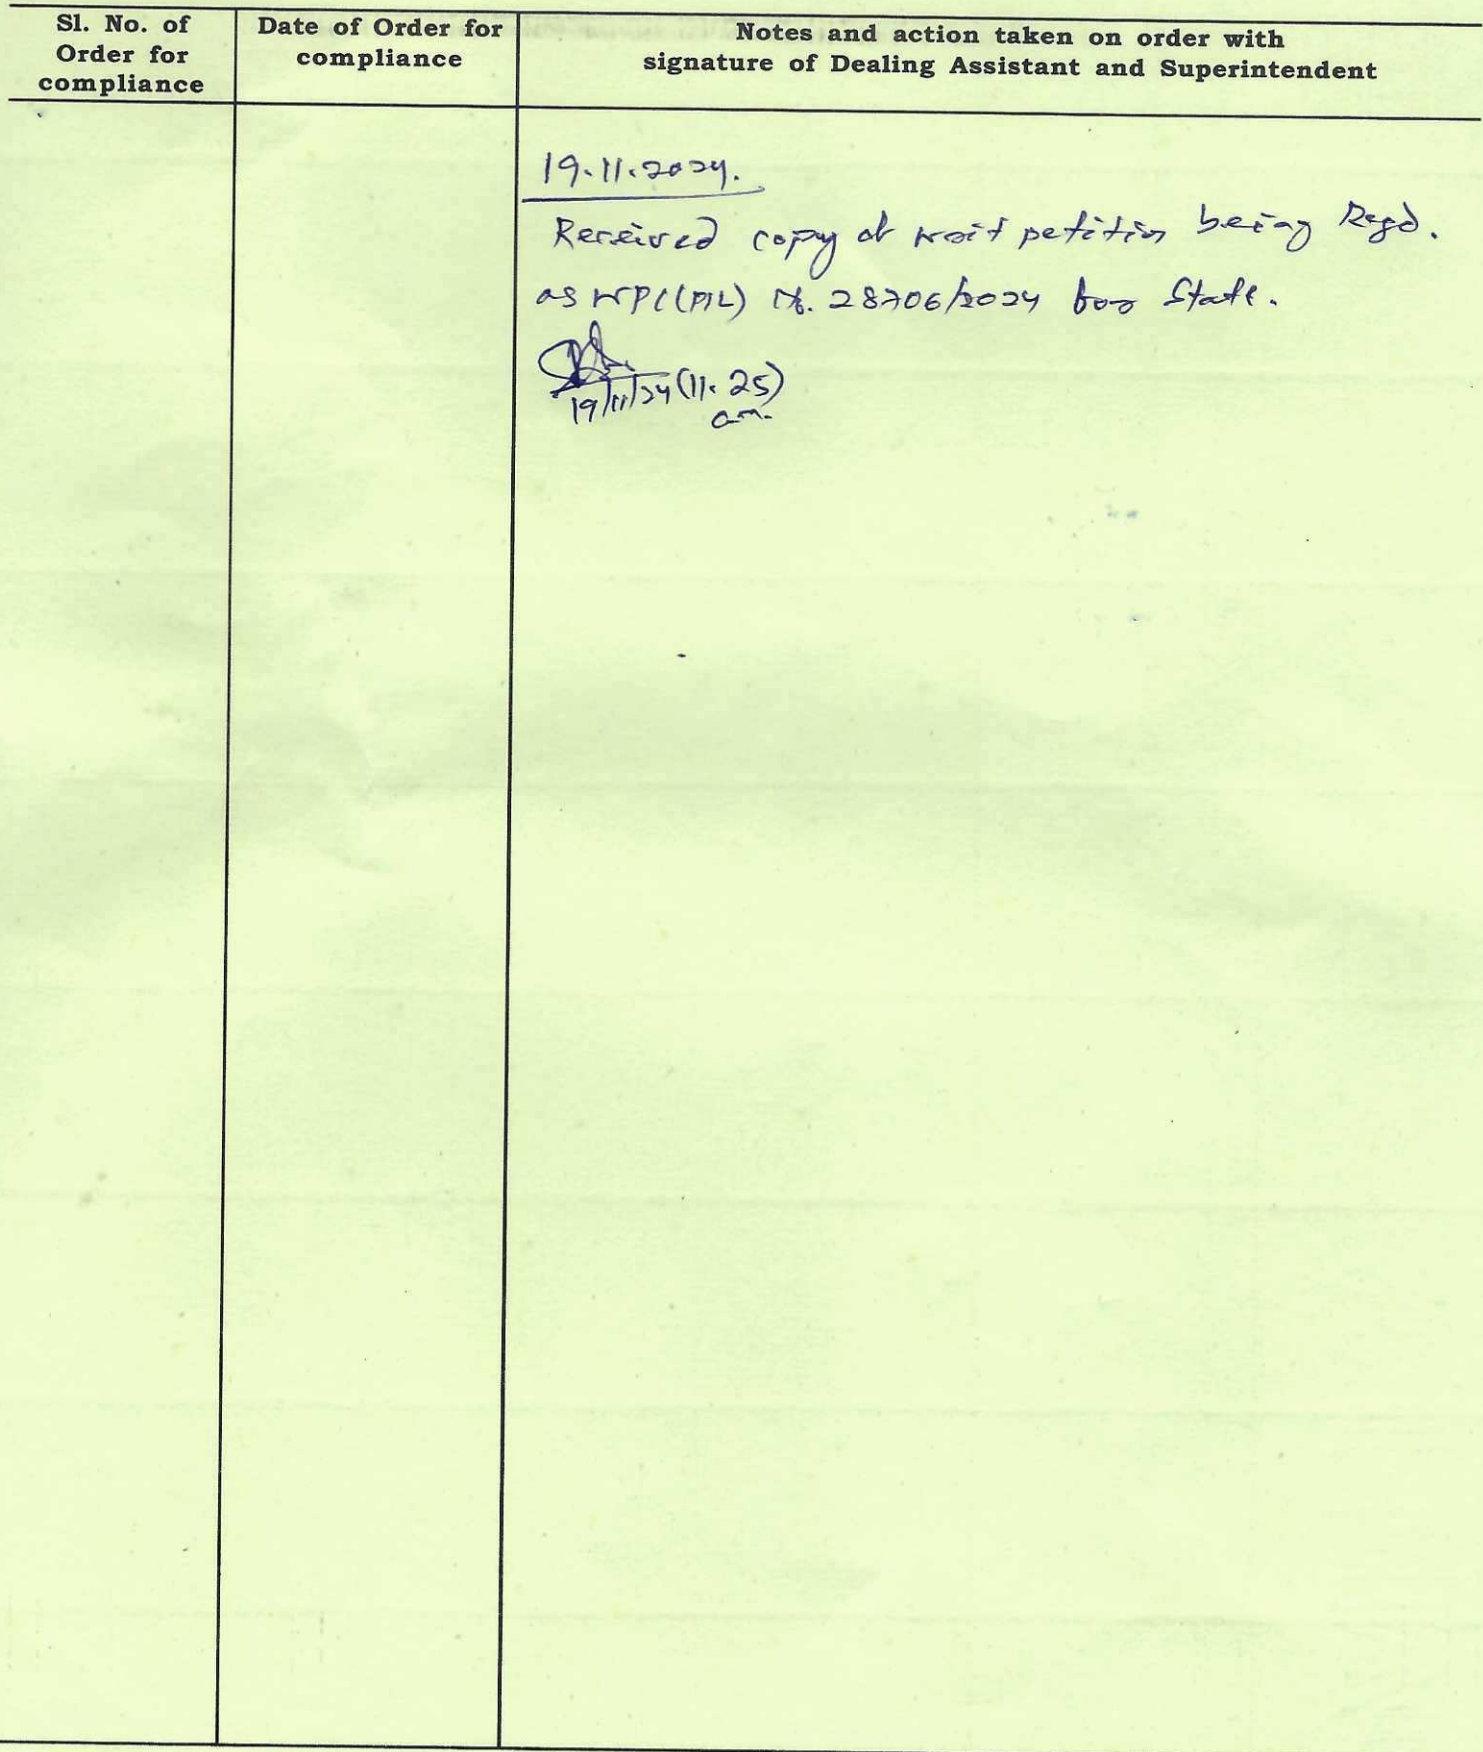 Sl. No. of
Order for
compliance
Date of Order for
compliance
Notes and action taken on order with
signature of Dealing Assistant and Superintendent
19.11.2024.
Received copy of writ petition being Regd.
as WPC(PIL) No. 28706/2024 for State.
19/11/24 (11.25)
a.m.